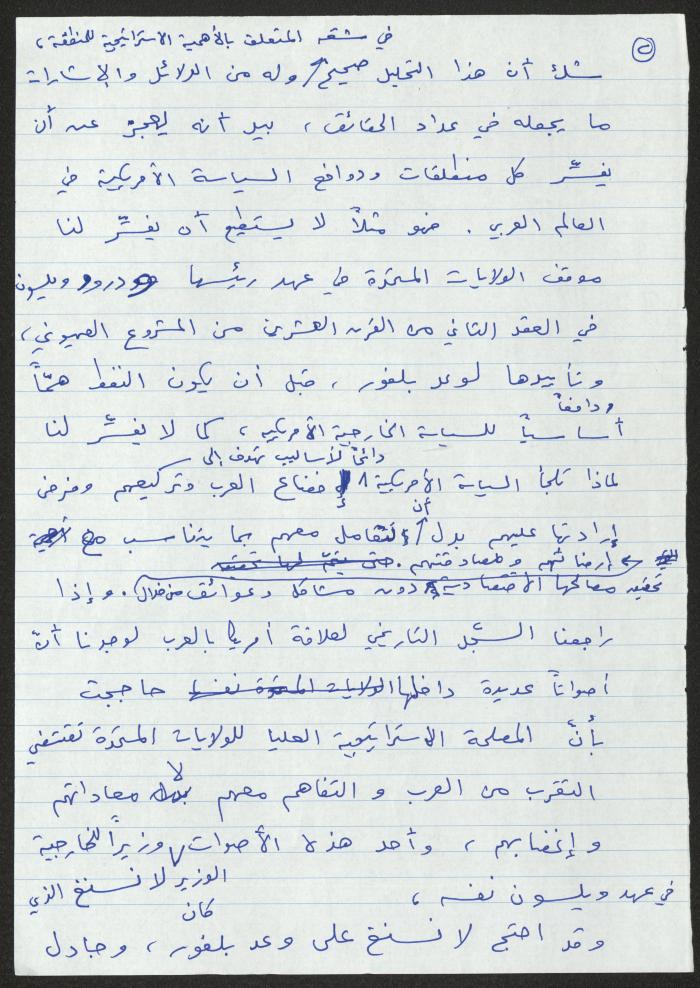 ٢
في شقه المتعلق بالأهمية الاستراتيجية للمنطقة،
شك أن هذا التحليل صحيح / وله من الدلائل والإشارات
ما يجعله في عداد الحقائق، بيد أنه يعجز عن أن
يفسّر كل منطلقات ودوافع السياسة الأمريكية في
العالم العربي. فهو مثلاً لا يستطيع أن يفسّر لنا
موقف الولايات المتحدة في عهد رئيسها وودرو ويلسون
في العقد الثاني من القرن العشرين من المشروع الصهيوني،
وتأييدها لوعد بلفور، قبل أن يكون النفط همّاً
ودافعاً
أساسياً للسياسة الخارجية الأمريكية، كما لا يفسّر لنا
دائماً لأساليب تهدف إلى
لماذا تلجأ السياسة الأمريكية إخضاع العرب وتركيعهم وفرض
أن
إرادتها عليهم بدل / تتعامل معهم بما يتناسب مع
إرضائهم ومصادقتهم. حتى يتمّ لها تحقيق
تحقيق مصالحها الاقتصادية دون مشاكل وعوائق من خلال. وإذا
راجعنا السجّل التاريخي لعلاقة أمريكا بالعرب لوجدنا أنّ
أصواتاً عديدة داخلها الولايات المتحدة نفسها حاججت
بأنّ المصلحة الاستراتيجية العليا للولايات المتحدة تقتضي
التقرب من العرب والتفاهم معهم لا معاداتهم
وإغضابهم، وأحد هذه الأصوات وزيراً للخارجية
الوزير لانسنغ الذي
كان
في عهد ويلسون نفسه،
وقد احتج لانسنغ على وعد بلفور، وجادل